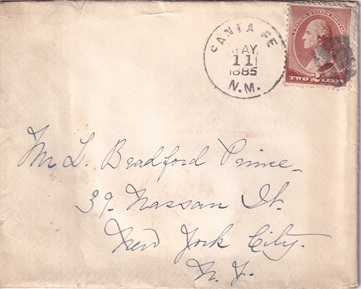 SANTA FE
MAY
11
1885
N.M.
TWO 2 CENTS
Mr L. Bradford Prince
39. Nassau St.
New York City.
N. Y.